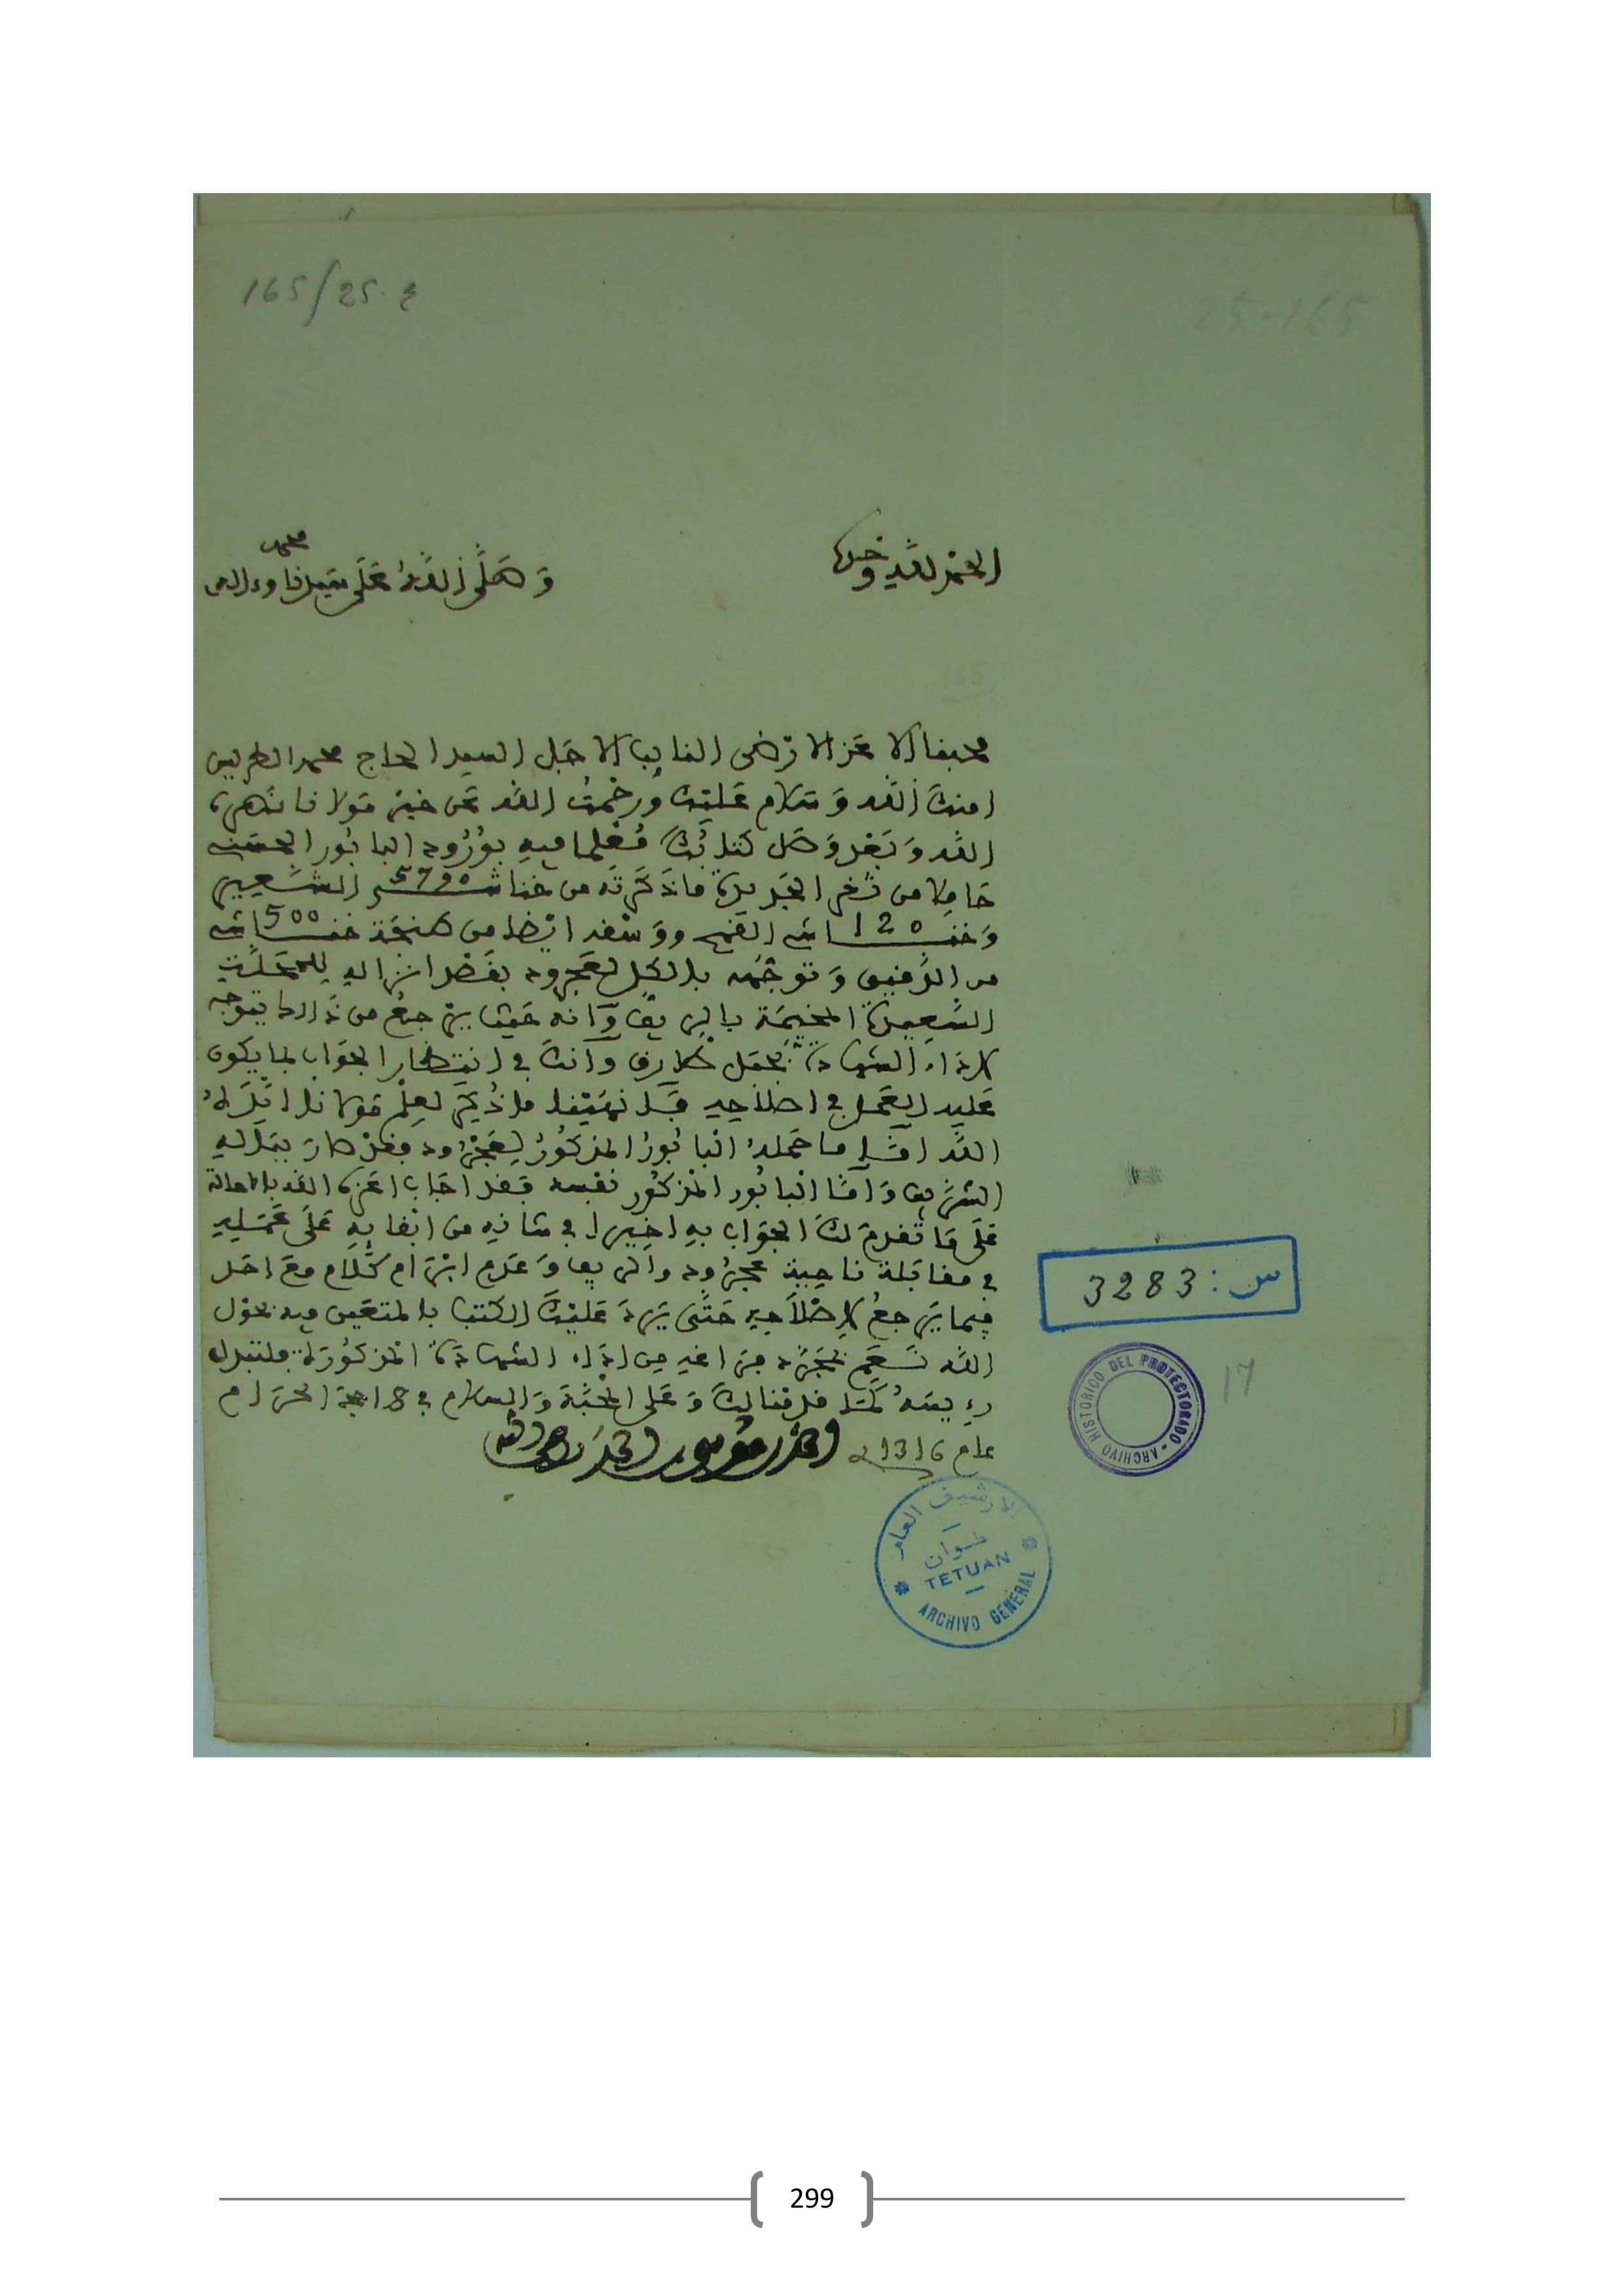 165/25.ع
25-165
الحمد لله وحده
وصلى الله على سيدنا محمد وءاله
محبنا الاعز الارضى النايب الاجل السيد الحاج محمد الطريس
امنك الله وسلام عليك ورحمت الله عن خير مولانا نصره
الله وبعد وصل كتابك معلما فيه بورود البابور الحسني
حاملا من ثغر الجديدة ما ذكرته من خناش 5790 الشعير
وخناش 120 القمح ووسقه ايضا من طنجة خناش 500
من الدقيق وتوجه بالكل لعجرود بقصد انزاله للمحلة
السعيدة المخيمة بالريف وانه عند يرجع من ذلك يتوجه
لاداء الشهادة بجبل طارق وانك في انتظار الجواب لما يكون
عليه العمل في اصلاحه فلا نهينا ما ذكر لعلم مولانا ايده
الله اما ما حمله البابور المذكور لعجرود فقد صار بباله
الشريف واما البابور المذكور نفسه فقد اجاب اعزه الله بالاحالة
على ما تقدم لك الجواب به اخيرا في شانه من ابقايه على عمله
في مقابلة ناحية عجرود والريف وعدم ابرام كلام مع احد
فيما يرجع لاصلاحه حتى يرد عليك الكتب بالمتعين فيه بحول
الله نعم بمجرد فراغه من اداء الشهادة المذكورة فلتبدل
رءيسه كما قدمنا لك وعلى المحبة والسلام في 8 حجة الحرام
عام 1316 احمد بن موسى بن احمد
س: 3283
17
ARCHIVO HISTORICO DEL PROTECTORADO
الارشيف العام
تطوان
TETUAN
ARCHIVO GENERAL
299